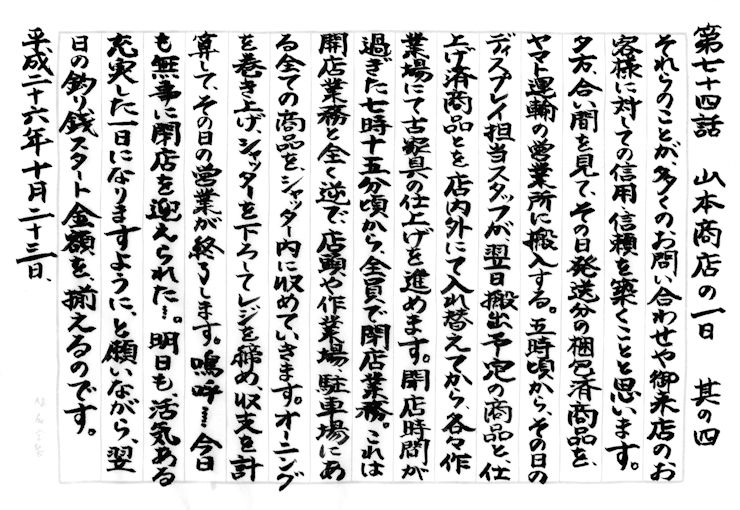 第七十四話 山本商店の一日 其の四
それらのことが、多くのお問い合わせや御来店のお
客様に対しての信用、信頼を築くことと思います。
夕方、合い間を見て、その日発送分の梱包済商品を、
ヤマト運輸の営業所に搬入する。五時頃から、その日の
ディスプレイ担当スタッフが、翌日搬出予定の商品と、仕
上げ済商品とを店内外にて入れ替えてから、各々作
業場にて古家具の仕上げを進めます。閉店時間が
過ぎた七時十五分頃から、全員で閉店業務。これは
開店業務と全く逆で、店頭や作業場、駐車場にあ
る全ての商品を、シャッター内に収めていきます。オーニング
を巻き上げ、シャッターを下ろしてレジを締め、収支を計
算して、その日の営業が終了します。嗚呼……今日
も無事に閉店を迎えられた…。明日も、活気ある
充実した一日になりますように、と願いながら、翌
日の釣り銭スタート金額を、揃えるのです。
平成二十六年十月二十三日、